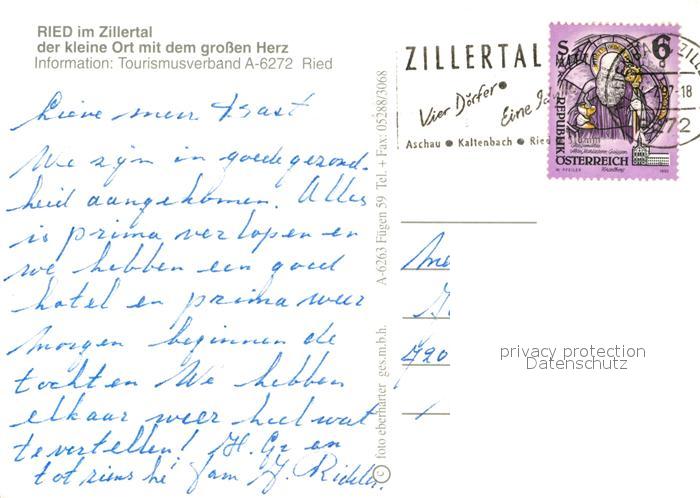 RIED im Zillertal
der kleine Ort mit dem großen Herz
Information: Tourismusverband A-6272 Ried
Lieve men
We zijn in goede gezond-
heid aangekomen. Alles
is prima verlopen en
we hebben een goed
hotel en prima weer
morgen beginnen de
tochten We hebben
elkaar weer heel wat
te vertellen! H. Gr en
tot ziens hé fam J.
© foto eberharter ges.m.b.h. A-6263 Fügen 59 Tel. + Fax: 05288/3068
ZILLERTAL
Vier Dörfer
Eine
Aschau • Kaltenbach • Ried
S 6
REPUBLIK
ÖSTERREICH
W. PFEILER
97-18
6272
Me
J.
720
privacy protection
Datenschutz